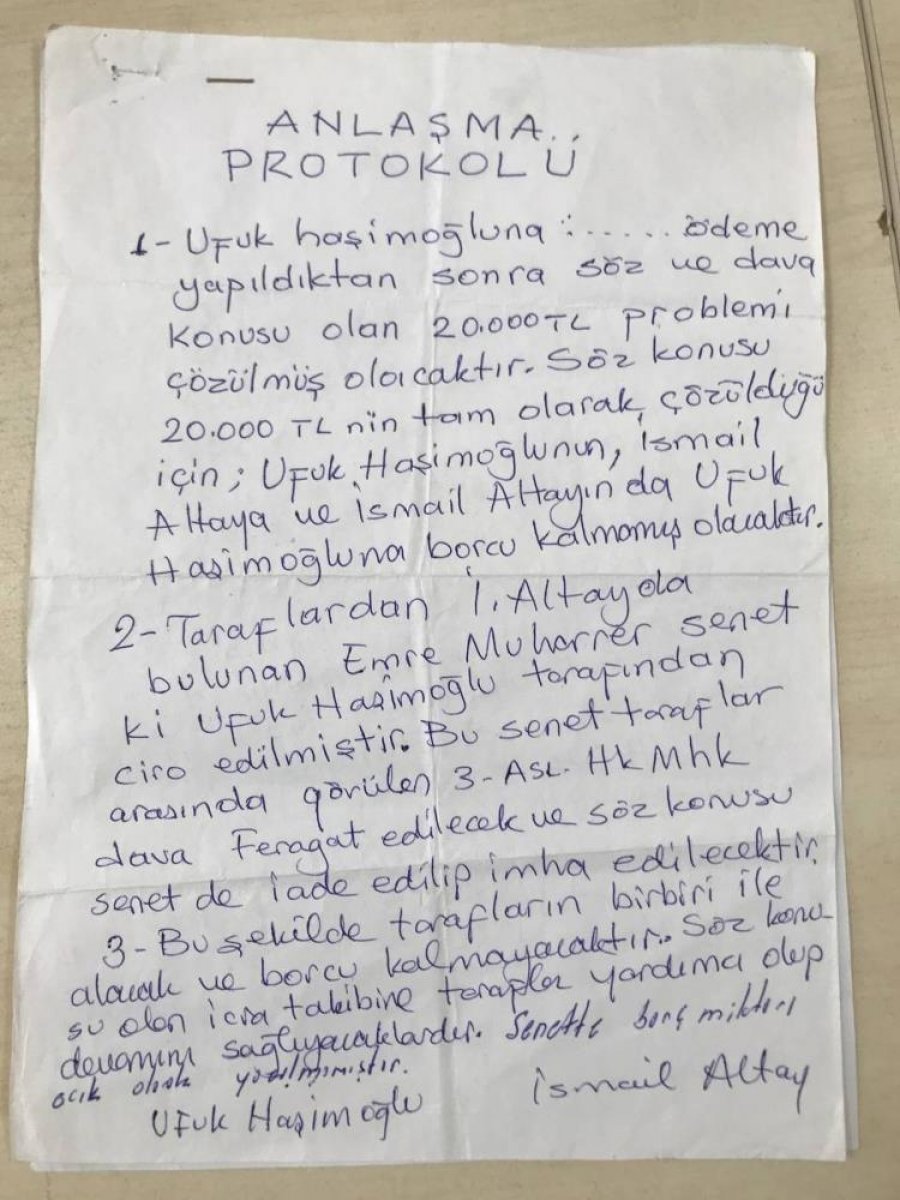 ANLAŞMA..
PROTOKOLÜ
1- Ufuk haşimoğluna :..... ödeme
yapıldıktan sonra söz ve dava
konusu olan 20.000 TL problemi
çözülmüş olacaktır. Söz konusu
20.000 TL nin tam olarak çözüldüğü
için; Ufuk Haşimoğlunun, ismail
Altaya ve ismail Altayında Ufuk
Haşimoğluna borcu kalmamış olacaktır.
2- Taraflardan İ. Altayda
bulunan Emre Muharrer senet
ki Ufuk Haşimoğlu tarafından
ciro edilmiştir. Bu senet taraflar
arasında görülen 3- Asl. Hk Mhk
dava Feragat edilecek ve söz konusu
senet de iade edilip imha edilecektir.
3- Bu şekilde tarafların birbiri ile
alacak ve borcu kalmayacaktır.. Söz konu-
su olan icra takibine taraflar yardımcı olup
devamını sağlıyacaklardır. Senette borç miktarı
açık olarak yazılmamıştır.
Ufuk Haşimoğlu
İsmail Altay